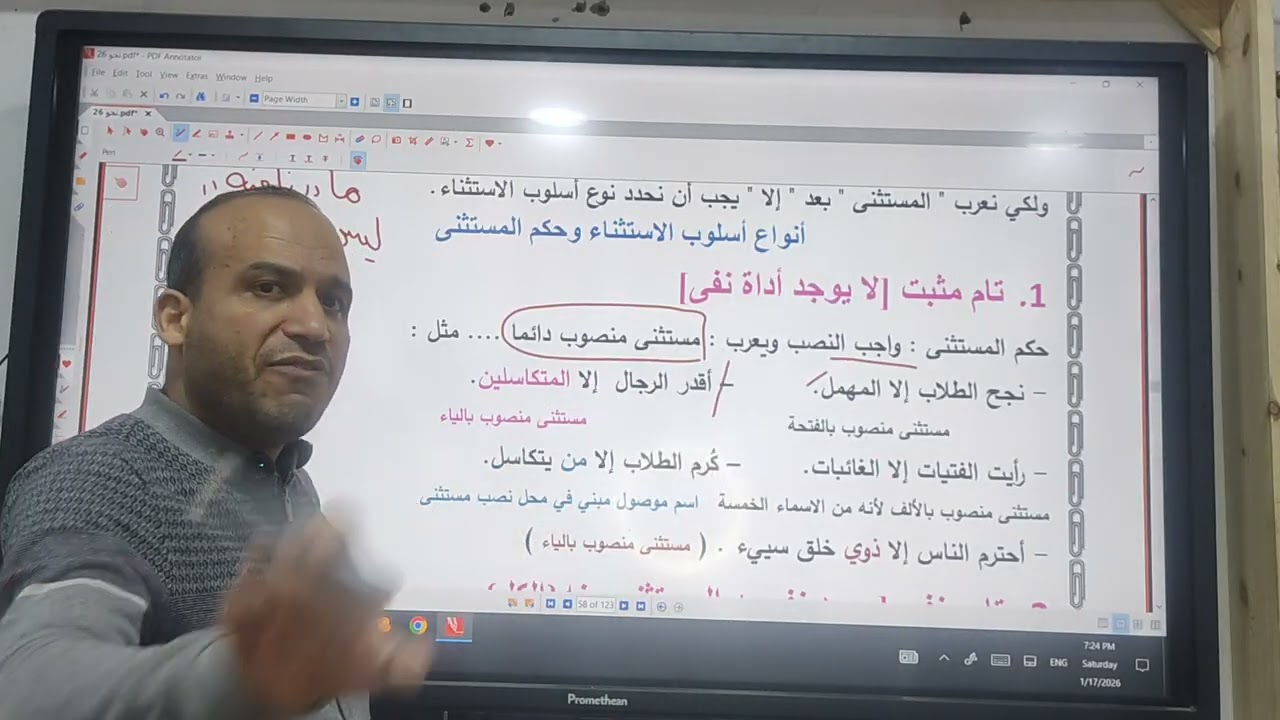 نحو 26.pdf* - PDF Annotator
File Edit Tool View Extras Window Help
Page Width
نحو 26.pdf*
Pen
ولكي نعرب " المستثنى " بعد " إلا " يجب أن نحدد نوع أسلوب الاستثناء .
أنواع أسلوب الاستثناء وحكم المستثنى
1. تام مثبت [لا يوجد أداة نفى]
حكم المستثنى : واجب النصب ويعرب : مستثنى منصوب دائما .... مثل :
– نجح الطلاب إلا المهمل. – أقدر الرجال إلا المتكاسلين.
مستثنى منصوب بالفتحة مستثنى منصوب بالياء
– رأيت الفتيات إلا الغائبات. – كُرم الطلاب إلا من يتكاسل.
مستثنى منصوب بالألف لأنه من الاسماء الخمسة اسم موصول مبني في محل نصب مستثنى
– أحترم الناس إلا ذوي خلق سييء . ( مستثنى منصوب بالياء )
58 of 123
ENG
7:24 PM
Saturday
1/17/2026
Promethean